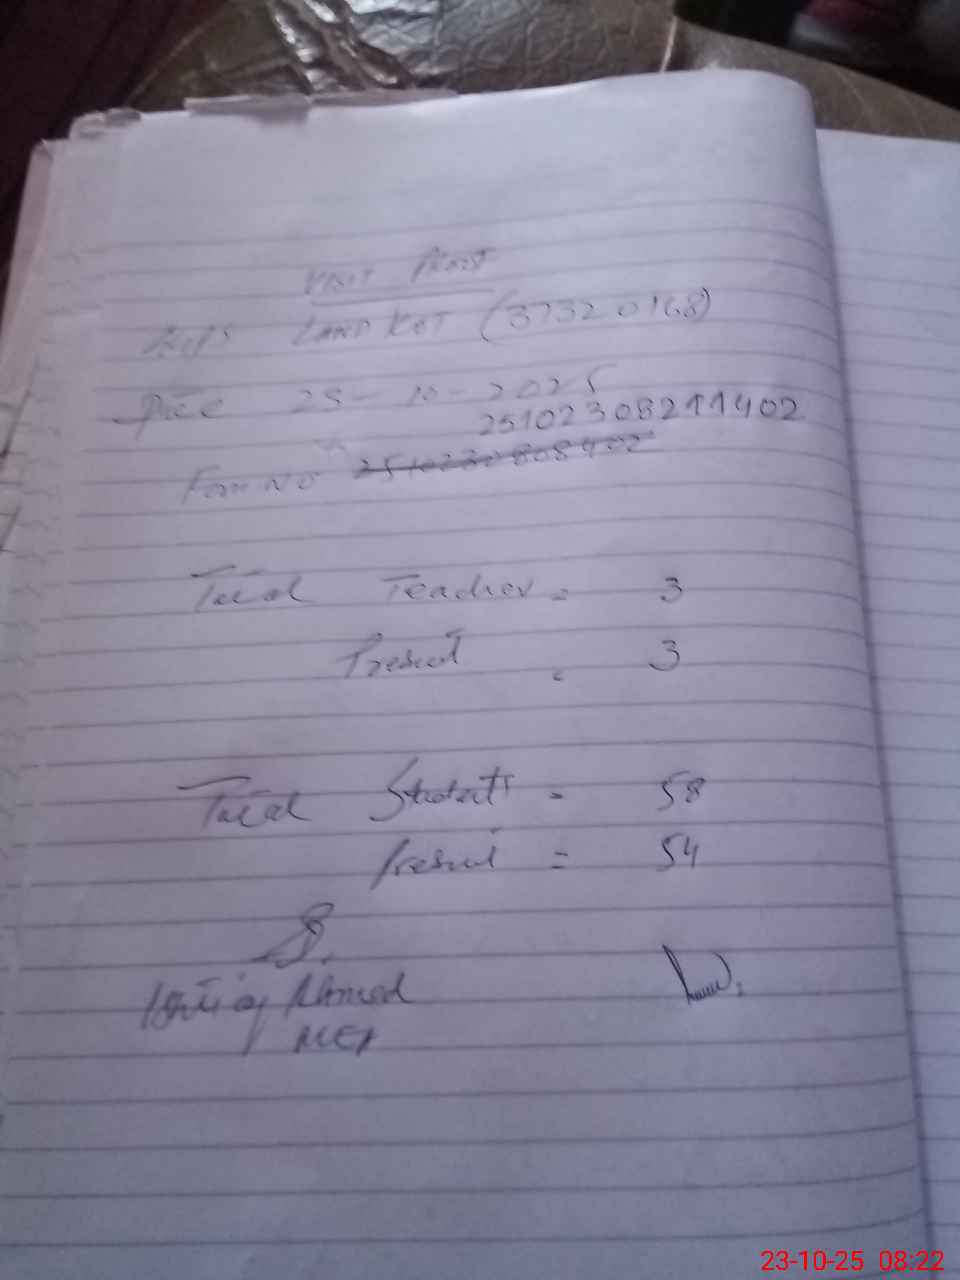 VISIT PROOF
GGPS LAND KOT (37320168)
Date 23-10-2025
25102308211402
Form NO 2510230808402
Total Teacher = 3
Present = 3
Total Students = 58
Present = 54
Ishtiaq Ahmed
MEA
23-10-25 08:22